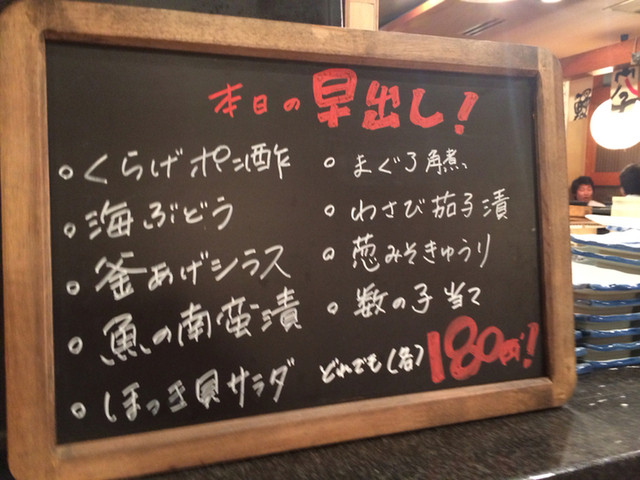 本日の早出し!
○くらげポン酢
○海ぶどう
○釜あげシラス
○魚の南蛮漬
○ほっき貝サラダ
○まぐろ角煮
○わさび茄子漬
○葱みそきゅうり
○数の子当て
どれでも(各)180円!